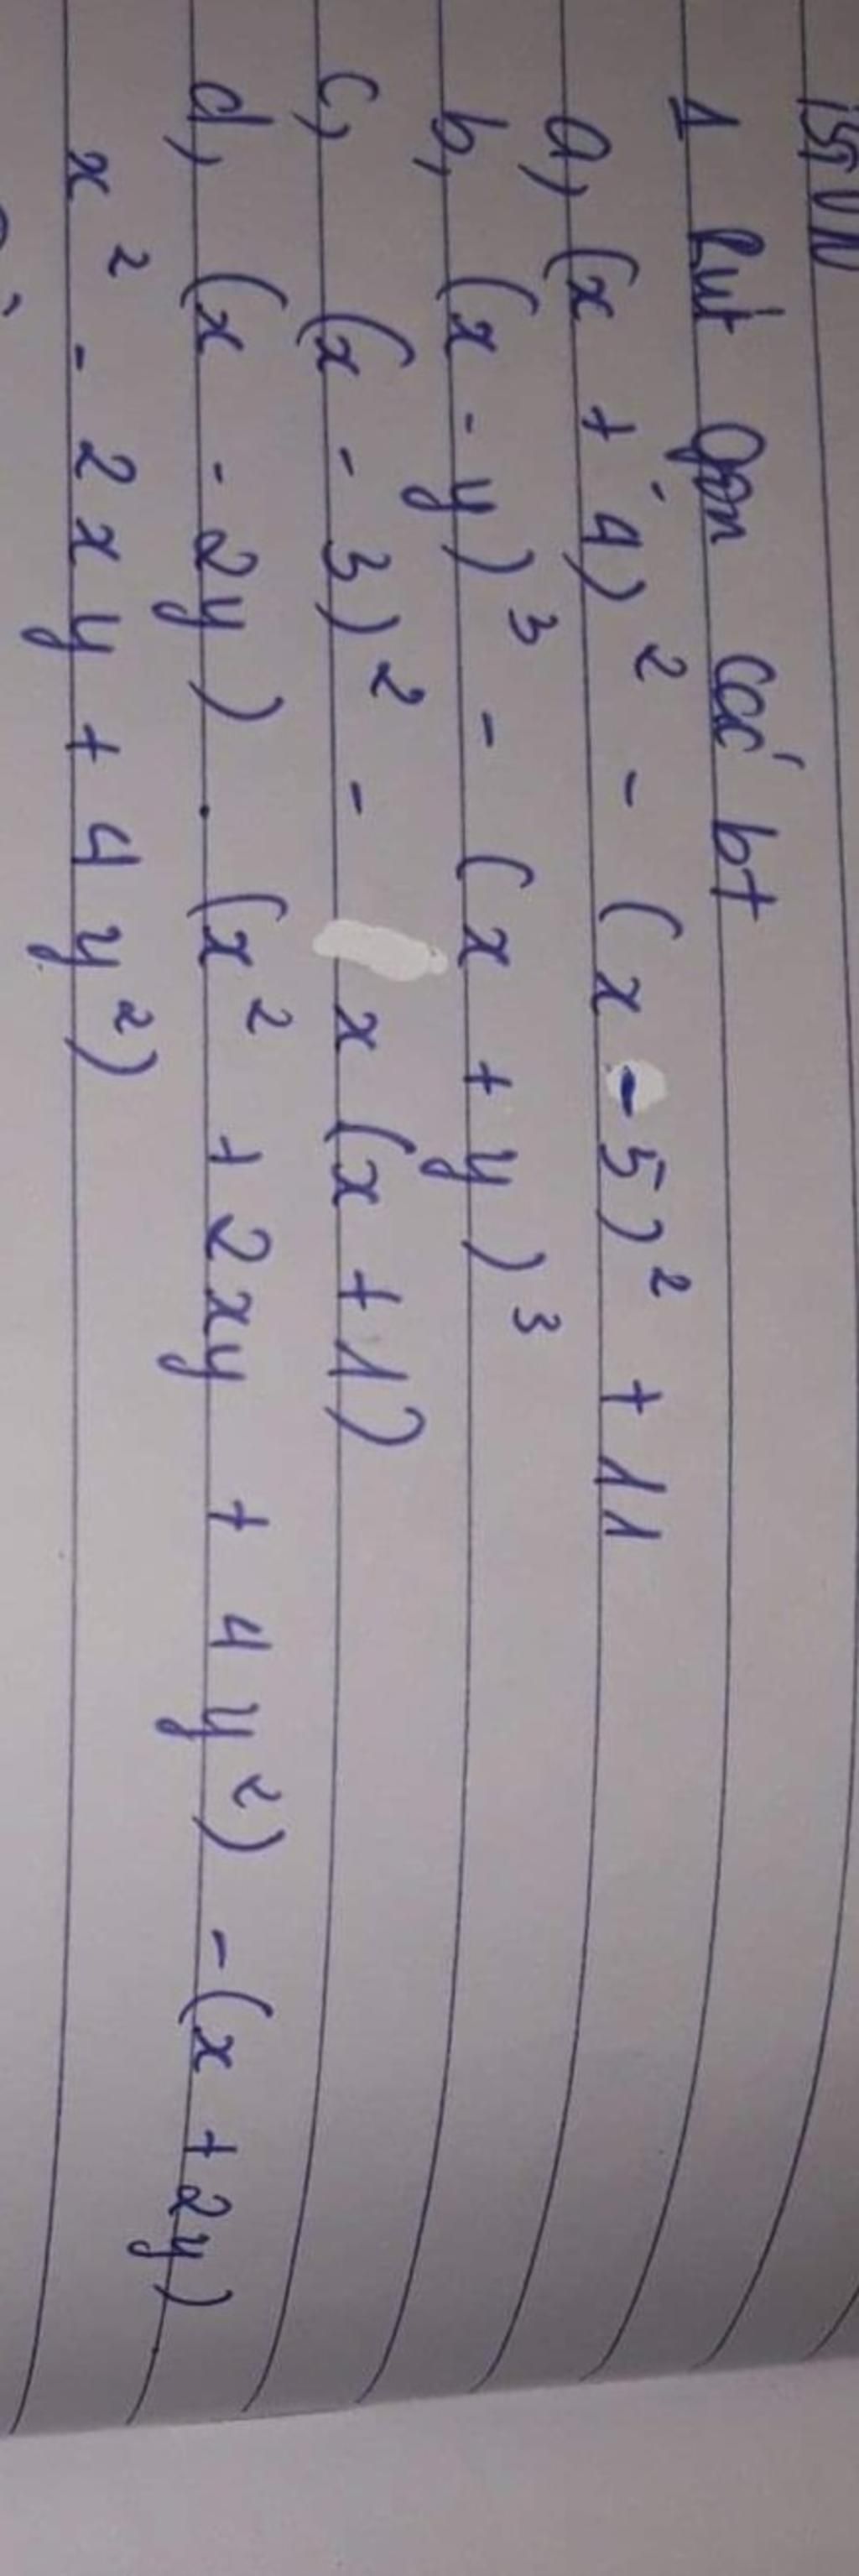 BTVN
1 Rút gọn các bt
a, (x + 4)² - (x - 5)² + 11
b, (x - y)³ - (x + y)³
c, (x - 3)² - x(x + 1)
d, (x - 2y) . (x² + 2xy + 4y²) - (x + 2y)
x² - 2xy + 4y²)